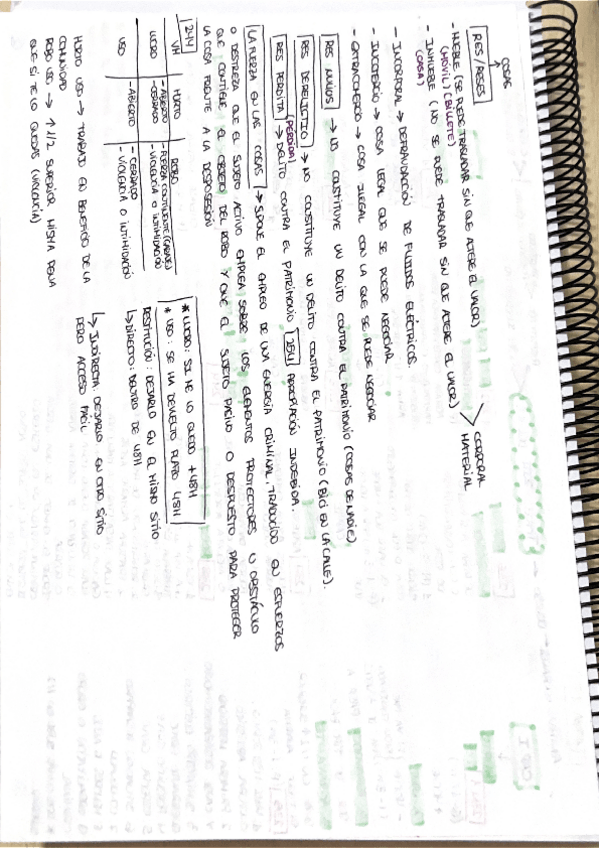 COSAS
RES/RESES
- MUEBLE (SE PUEDE TRASLADAR SIN QUE ALTERE EL VALOR)
(MÓVIL) (BILLETE)
- INMUEBLE (NO SE PUEDE TRASLADAR SIN QUE ALTERE EL VALOR)
(CASA)
CORPORAL
MATERIAL
- INCORPORAL → DEFRAUDACCIÓN DE FLUIDOS ELÉCTRICOS.
- INCOMERCIO → COSA LEGAL QUE SE PUEDE NEGOCIAR
- EXTRACOMERCIO → COSA ILEGAL CON LA QUE SE PUEDE NEGOCIAR
RES NULIUS → NO CONSTITUYE UN DELITO CONTRA EL PATRIMONIO (COSAS DE NADIE)
RES DERELICTIO → NO CONSTITUYE UN DELITO CONTRA EL PATRIMONIO (BICI EN LA CALLE).
RES PERDITA → DELITO CONTRA EL PATRIMONIO 254 APROPIACIÓN INDEBIDA.
(PERDIDA)
LA FUERZA EN LAS COSAS → SUPONE EL EMPLEO DE UNA ENERGÍA CRIMINAL, TRADUCIDO EN ESFUERZOS
O DESTREZA QUE EL SUJETO ACTIVO EMPLEA SOBRE LOS ELEMENTOS PROTECTORES U OBSTÁCULO
QUE CONTIENE EL OBJETO DEL ROBO Y QUE EL SUJETO PASIVO O DISPUESTO PARA PROTEGER
LA COSA FRENTE A LA DESPOSESIÓN
244
VH HURTO ROBO
LUCRO - ABIERTO - FUERZA CONTUNDENTE (CABLES)
- CERRADO - VIOLENCIA O INTIMIDACIÓN
USO - ABIERTO - CERRADO
- VIOLENCIA O INTIMIDACIÓN
* LUCRO: SI ME LO QUEDO +48H
* USO: SE HA DEVUELTO PLAZO 48H
RESTITUCIÓN: DEJARLO EN EL MISMO SITIO
↳ DIRECTO: DENTRO DE 48H
↳ INDIRECTA: DEJARLO EN OTRO SITIO
PERO ACCESO FÁCIL
HURTO USO → TRABAJO EN BENEFICIO DE LA
COMUNIDAD
ROBO USO → ↑ 1/2 SUPERIOR MISMA PENA
QUE SI TE LO QUEDAS (VIOLENCIA)